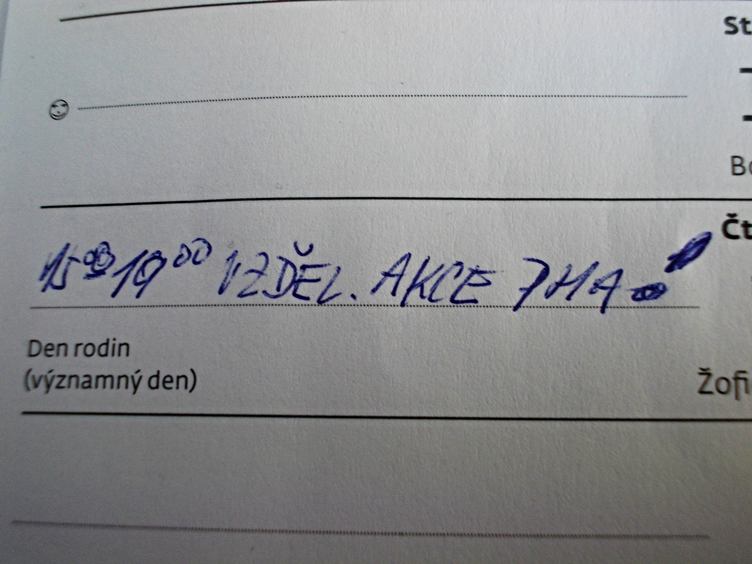 St
Bo
Čt
15⁰⁰ 19⁰⁰ VZDĚL. AKCE PHA
Den rodin
(významný den)
Žofi